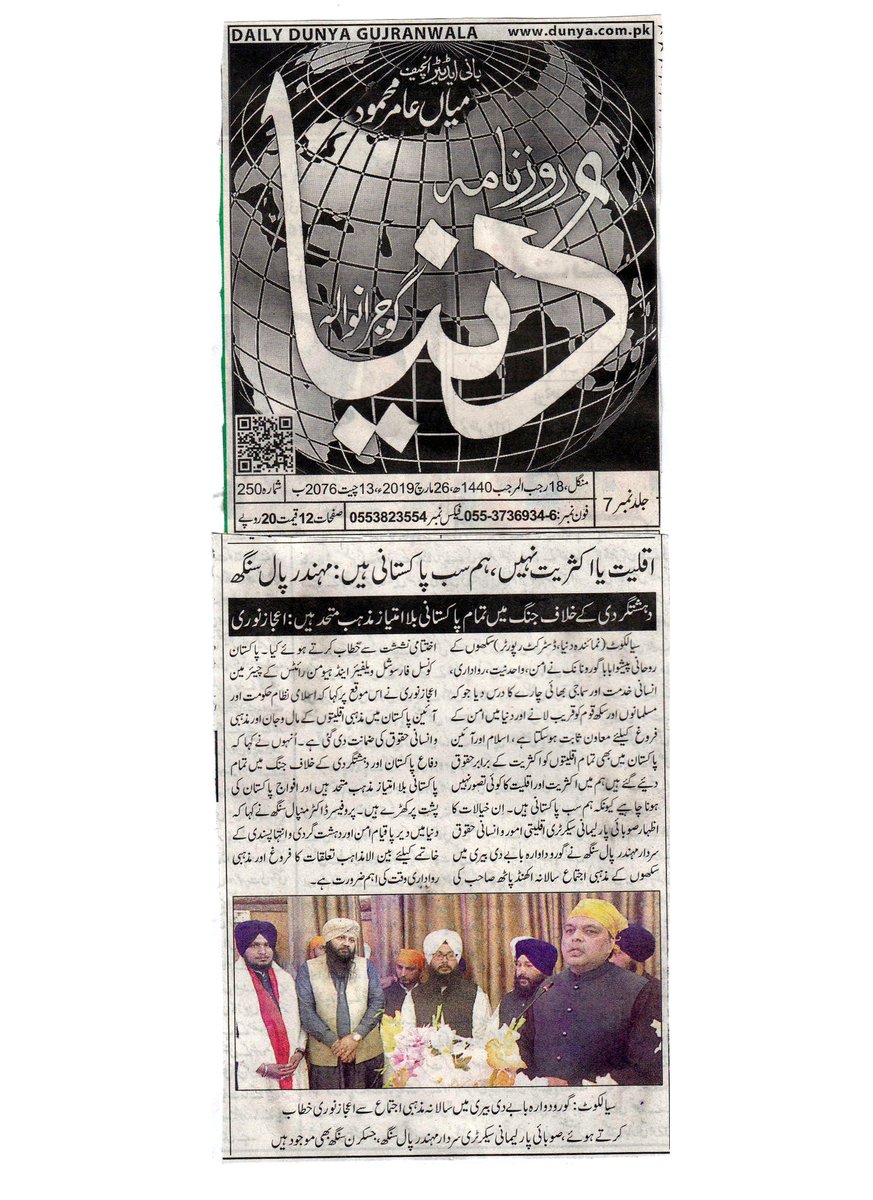 DAILY DUNYA GUJRANWALA www.dunya.com.pk
بانی ایڈیٹر انچیف
میاں عامر محمود
روزنامہ
دُنیا
گوجرانوالہ
جلد نمبر 7
منگل، 18 رجب المرجب 1440ھ، 26 مارچ 2019ء، 13 چیت 2076 ب شمارہ 250
فون نمبر: 6-055-3736934 فیکس نمبر 0553823554 صفحات 12 قیمت 20 روپے
اقلیت یا اکثریت نہیں، ہم سب پاکستانی ہیں: مہندر پال سنگھ
دہشتگردی کے خلاف جنگ میں تمام پاکستانی بلا امتیاز مذہب متحد ہیں: اعجاز نوری
سیالکوٹ (نمائندہ دنیا، ڈسٹرکٹ رپورٹر) سکھوں کے
روحانی پیشوا بابا گورونانک نے امن، واحدنیت، رواداری،
انسانی خدمت اور سماجی بھائی چارے کا درس دیا جو کہ
مسلمانوں اور سکھ قوم کو قریب لانے اور دنیا میں امن کے
فروغ کیلئے معاون ثابت ہوسکتا ہے، اسلام اور آئین
پاکستان میں بھی تمام اقلیتوں کو اکثریت کے برابر حقوق
دیئے گئے ہیں ہم میں اکثریت اور اقلیت کا کوئی تصور نہیں
ہونا چاہیے کیونکہ ہم سب پاکستانی ہیں۔ اِن خیالات کا
اظہار صوبائی پارلیمانی سیکرٹری اقلیتی امور و انسانی حقوق
سردار مہندر پال سنگھ نے گورودوارہ بابے دی بیری میں
سکھوں کے مذہبی اجتماع سالانہ اکھنڈ پاٹھ صاحب کی
اختتامی نشست سے خطاب کرتے ہوئے کیا۔ پاکستان
کونسل فار سوشل ویلفیئر اینڈ ہیومن رائٹس کے چیئرمین
اعجاز نوری نے اس موقع پر کہا کہ اسلامی نظام حکومت اور
آئین پاکستان میں مذہبی اقلیتوں کے مال و جان اور مذہبی
و انسانی حقوق کی ضمانت دی گئی ہے۔ اُنہوں نے کہا کہ
دفاع پاکستان اور دہشتگردی کے خلاف جنگ میں تمام
پاکستانی بلا امتیاز مذہب متحد ہیں اور افواج پاکستان کی
پشت پر کھڑے ہیں۔ پروفیسر ڈاکٹر منپال سنگھ نے کہا کہ
دنیا میں دیرپا قیام امن اور دہشت گردی و انتہا پسندی کے
خاتمے کیلئے بین الامذاہب تعلقات کا فروغ اور مذہبی
رواداری وقت کی اہم ضرورت ہے۔
سیالکوٹ: گورودوارہ بابے دی بیری میں سالانہ مذہبی اجتماع سے اعجاز نوری خطاب
کرتے ہوئے، صوبائی پارلیمانی سیکرٹری سردار مہندر پال سنگھ، جسکرن سنگھ بھی موجود ہیں